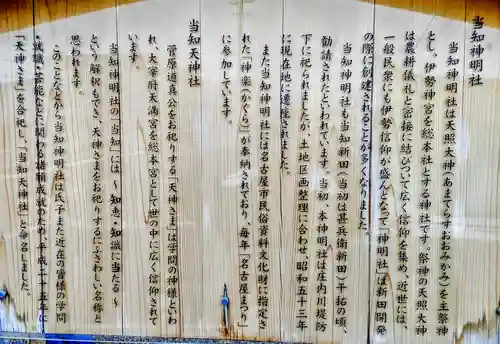 当知神明社
当知神明社は天照大神(あまてらすおおみかみ)を主祭神
とし、伊勢神宮を総本社とする神社です。祭神の天照大神
は農耕儀礼と密接に結びついて広く信仰を集め、近世には、
一般民衆にも伊勢信仰が盛んとなって「神明社」は新田開発
の際に創建されることが多くなりました。
当知神明社も当知新田(当初は甚兵衛新田)干拓の頃、
勧請されたといわれています。当初、本神明社は庄内川堤防
下に祀られましたが、土地区画整理に合わせ、昭和五十三年
に現在地に遷座されました。
また当知神明社には名古屋市民俗資料文化財に指定さ
れた「神楽(かぐら)」が奉納されており、毎年「名古屋まつり」
に参加しています。
当知天神社
菅原道真公をお祀りする「天神さま」は学問の神様といわ
れ、大宰府天満宮を総本宮として世の中に広く信仰されて
います。
当知神明社の「当知」には ~知恵・知識に当たる~
という解釈もでき、天神さまをお祀りするにふさわしい名称と
思われます。
このことなどから当知神明社は氏子また近在の皆様の学問
・就職・芸能などに関わる諸願成就のため、平成二十五年に
「天神さま」を合祀し、「当知天神社」と命名しました。